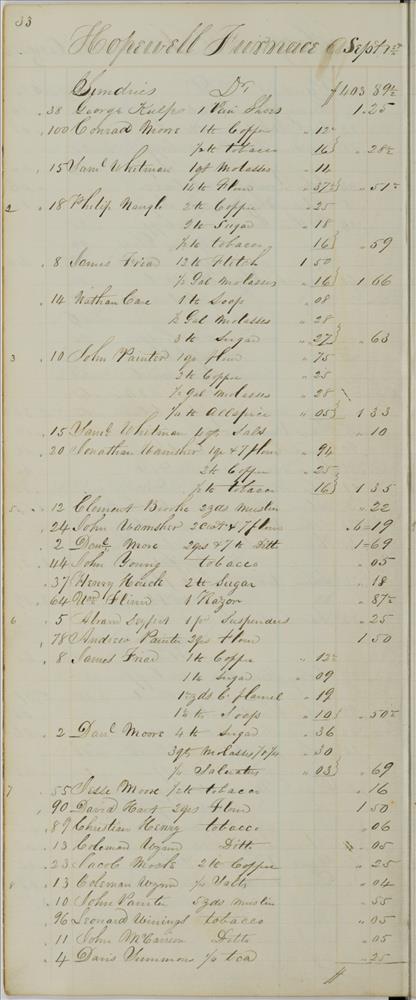 33
Hopewell Furnace Sept 1st
Sundries Dr $403 89½
38 George Kulp 1 Pair Shoes 1.25
100 Conrad Moore 1 lb Coffee 12½
½ lb tobacco 16 28½
15 Saml Whitman 1 qt Molasses 14
14 lb Flour 37½ 51½
2 18 Philip Nangle 2 lb Coffee 25
2 lb Sugar 18
½ lb tobacco 16 59
8 James Friad 12 lb Flitch 1 50
½ Gal Molasses 16 1 66
14 Nathan Care 1 lb Soap 08
½ Gal Molasses 28
3 lb Sugar 27 63
3 10 John Painter 1 qr flour 75
2 lb Coffee 25
½ gal Molasses 28
¼ lb Allspice 05 1 33
15 Saml Whitman Salts 10
20 Jonathan Wamsher 1 qr & 7 flour 94
2 lb Coffee 25
½ lb tobacco 16 1 35
5 12 Clement Brooke 2 yds muslin 22
24 John Wamsher 2 Cwt & 7 flour 6=19
2 Danl Moore 2 qrs & 7 lb Ditt 1=69
44 John Young tobacco 05
37 Henry Houck 2 lb Sugar 18
64 Wm Flinn 1 Razor 87½
6 5 Abram Seyfert 1 pr Suspenders 25
78 Andrew Painter 2 qrs flour 1 50
8 James Friad 1 lb Coffee 12½
1 lb Sugar 09
yds C. flannel 19
lb Soap 10 50½
2 Danl Moore 4 lb Sugar 36
3 qts Molasses 30
¼ Salaratus 03 69
7 55 Jesse Moore ½ lb tobacco 16
90 David Hart 2 qrs Flour 1 50
89 Christian Henry tobacco 06
13 Coleman Wynn Ditt 05
23 Jacob Moore 2 lb Coffee 25
8 13 Coleman Wynn Salts 04
10 John Painter 5 yds muslin 55
96 Leonard Winings tobacco 05
11 John McCarren Ditto 05
4 Davis Simmons tea 25